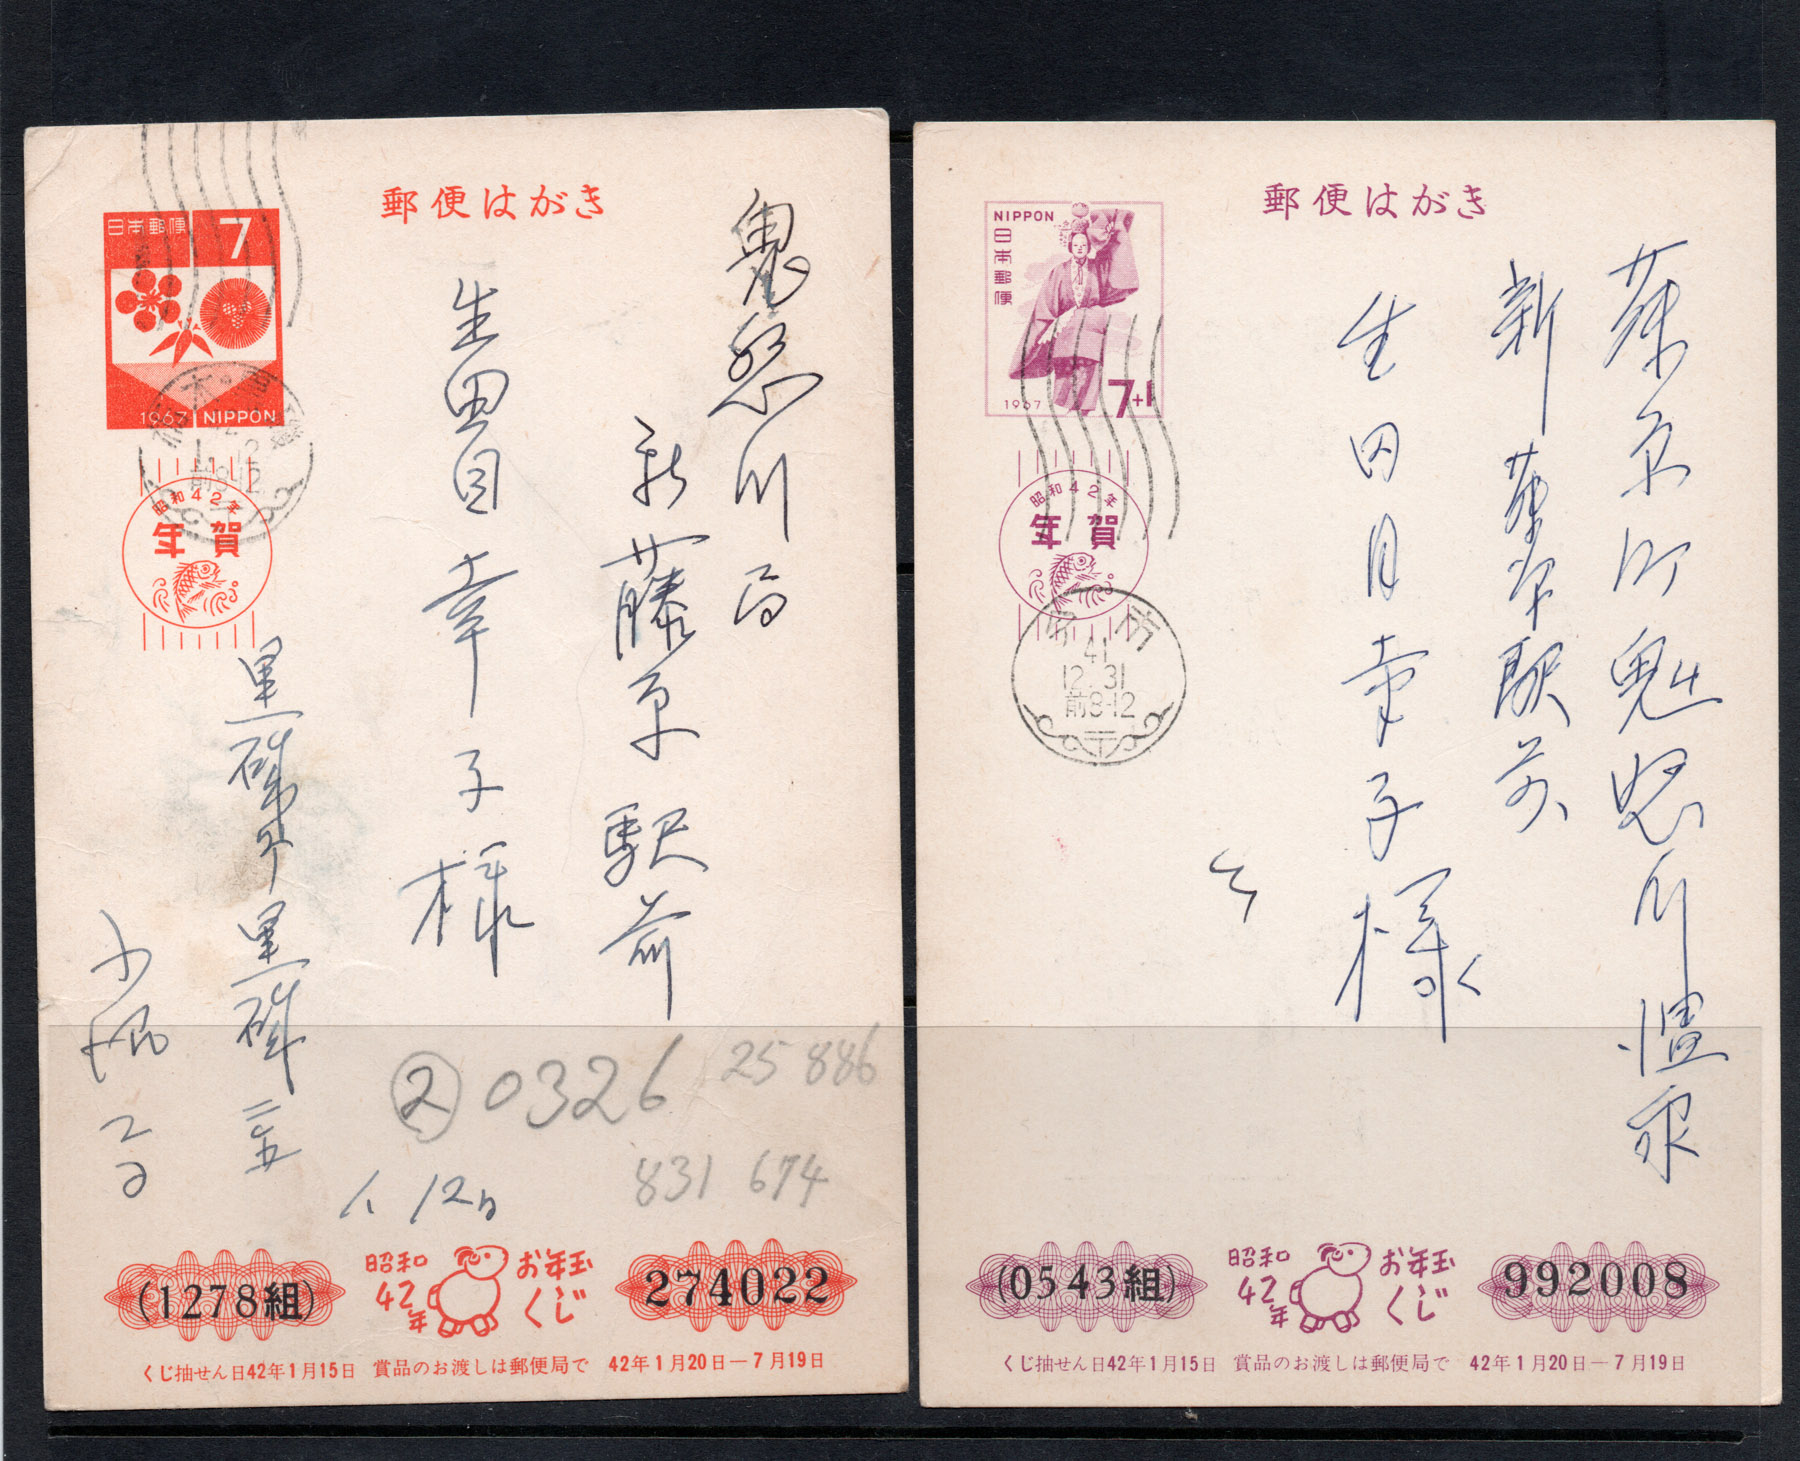 郵便はがき
日本郵便 7
1967 NIPPON
前8-12
昭和42年
年賀
鬼怒川局
新藤原駅前
生田目幸子様
黒磯市黒磯三五
② 0326
25 886
831 674
1、12日
(1278組)
昭和42年
お年玉くじ
274022
くじ抽せん日42年1月15日 賞品のお渡しは郵便局で 42年1月20日—7月19日
郵便はがき
NIPPON
日本郵便
1967 7+1
昭和42年
年賀
市
41
12.31
前8-12
藤原町鬼怒川温泉
新藤原駅前
生田目幸子様
(0543組)
昭和42年
お年玉くじ
992008
くじ抽せん日42年1月15日 賞品のお渡しは郵便局で 42年1月20日—7月19日